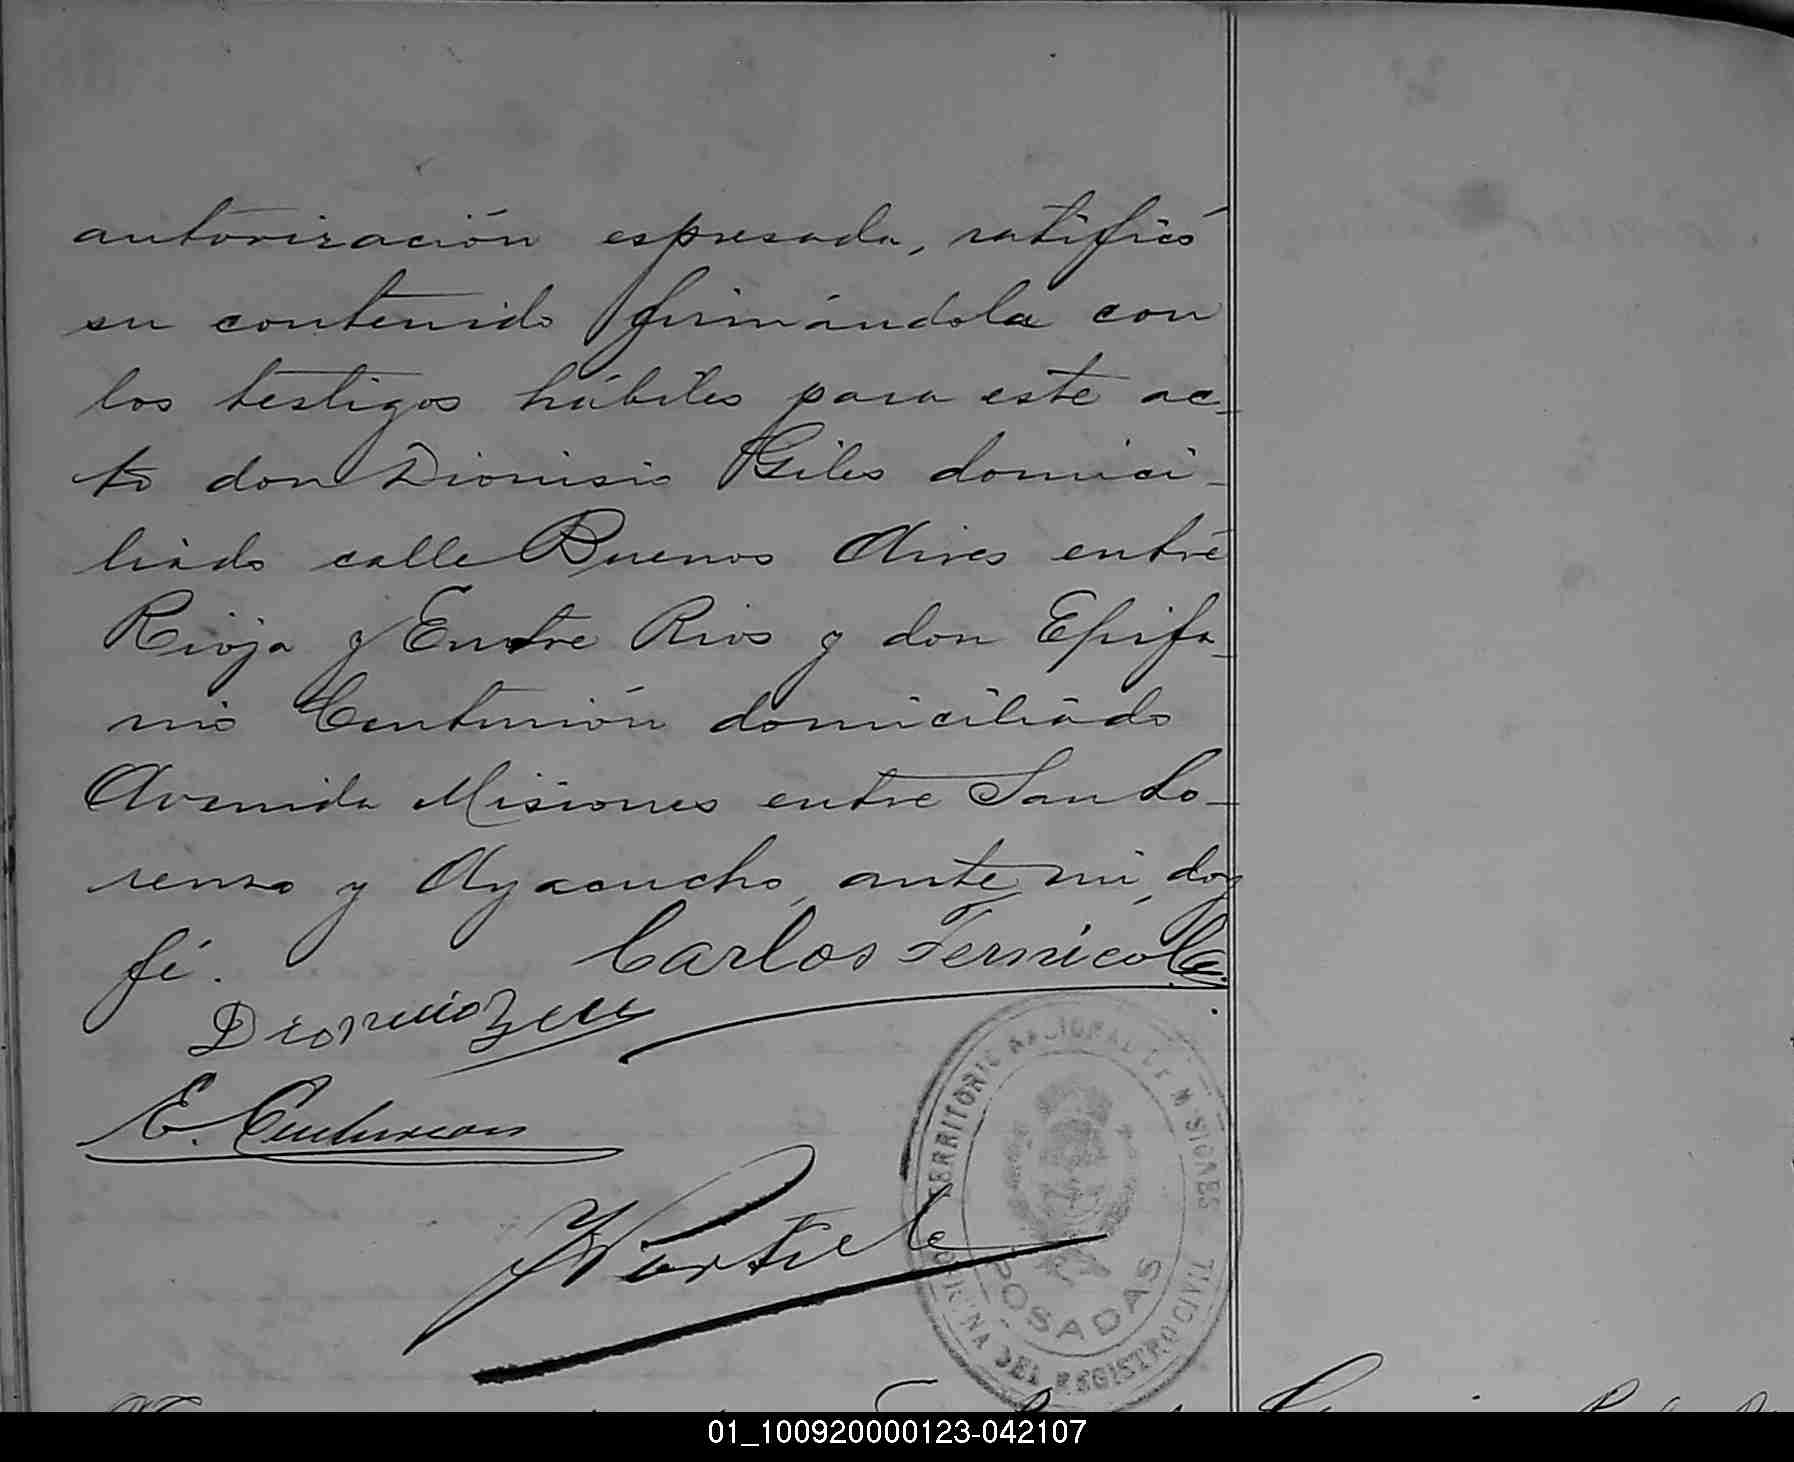 autorización espresada, ratificó
su contenido firmándola con
los testigos hábiles para este ac-
to don Dionisio Giles domici-
liado calle Buenos Aires entre
Rioja y Entre Rios y don Epifa-
nio Centurión domiciliado
Avenida Misiones entre San Lo-
renzo y Ayacucho, ante mi, doy
fé. Carlos Fernicola
Dionicio
E. Centurion
TERRITORIO NACIONAL DE MISIONES
POSADAS
OFICINA DEL REGISTRO CIVIL
01_100920000123-042107